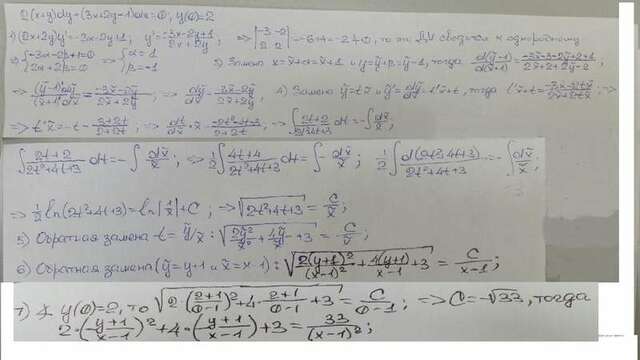 2(x+y)dy+(3x+2y-1)dx=0, y(0)=2
1) (2x+2y)y'=-3x-2y+1; y'=(-3x-2y+1)/(2x+2y); => |-3 -2; 2 2| = -6+4=-2≠0, то это ДУ сводится к однородному
2) {-3α-2β+1=0; 2α+2β=0 => {α=1; β=-1 3) Замена x=x̃+α=x̃+1 и y=ỹ+β=ỹ-1, тогда d(ỹ-1)/d(x̃+1)=(-3x̃-3-2ỹ+2+1)/(2x̃+2+2ỹ-2);
=> (ỹ-1)'dỹ/(x̃+1)'dx̃=(-3x̃-2ỹ)/(2x̃+2ỹ); => dỹ/dx̃=(-3x̃-2ỹ)/(2x̃+2ỹ); 4) Замена ỹ=tx̃ и ỹ'=dỹ/dx̃=t'x̃+t, тогда t'x̃+t=(-3x̃-2tx̃)/(2x̃+2tx̃); =>
=> t'x̃=-t-(3+2t)/(2+2t); => dt/dx̃·x̃=(-2t²-4t-3)/(2+2t); => ∫(2t+2)/(2t²+4t+3)dt=-∫dx̃/x̃;
∫(2t+2)/(2t²+4t+3)dt=-∫dx̃/x̃; => 1/2∫(4t+4)/(2t²+4t+3)dt=∫-dx̃/x̃; 1/2∫d(2t²+4t+3)/(2t²+4t+3)=-∫dx̃/x̃;
=> 1/2 ln(2t²+4t+3)=ln|1/x̃|+C; => √(2t²+4t+3)=C/x̃;
5) Обратная замена t=ỹ/x̃: √(2ỹ²/x̃²+4ỹ/x̃+3)=C/x̃;
6) Обратная замена (ỹ=y+1 и x̃=x-1): √(2(y+1)²/(x-1)²+4(y+1)/(x-1)+3)=C/(x-1);
7) y(0)=2, то √(2·((2+1)/(0-1))²+4·(2+1)/(0-1)+3)=C/(0-1); => C=-√33, тогда
2·((y+1)/(x-1))²+4·((y+1)/(x-1))+3=33/(x-1)²;